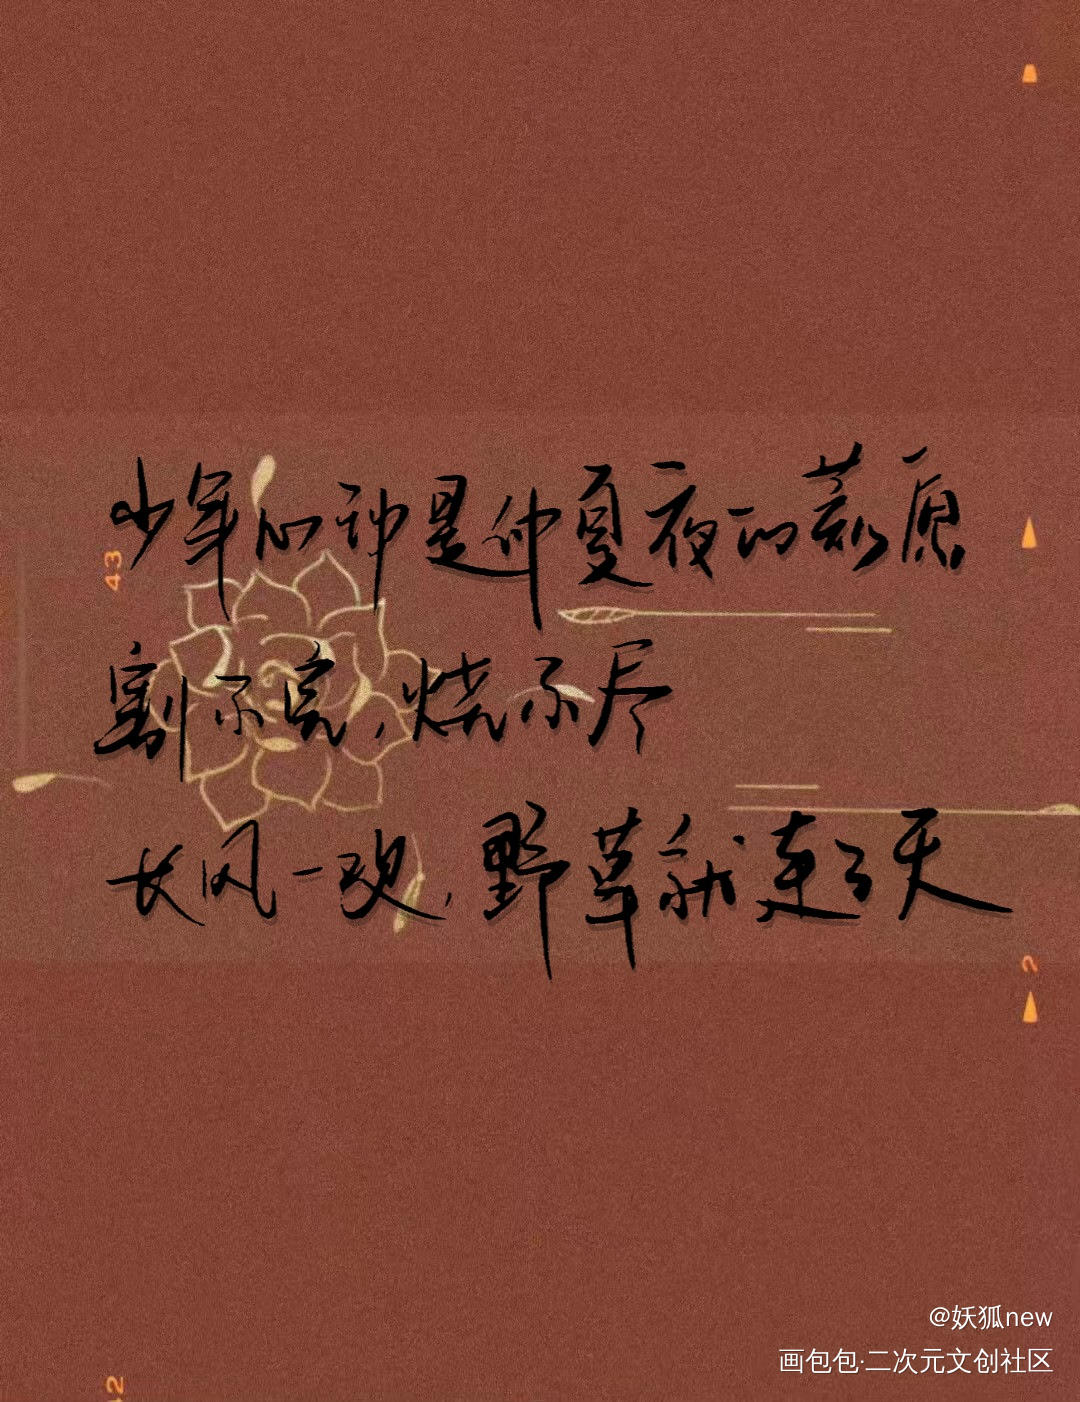 少年心神是仲夏夜的荒原
43
割不完，烧不尽
长风一吹，野草就连了天
2
@妖狐new
画包包·二次元文创社区
42